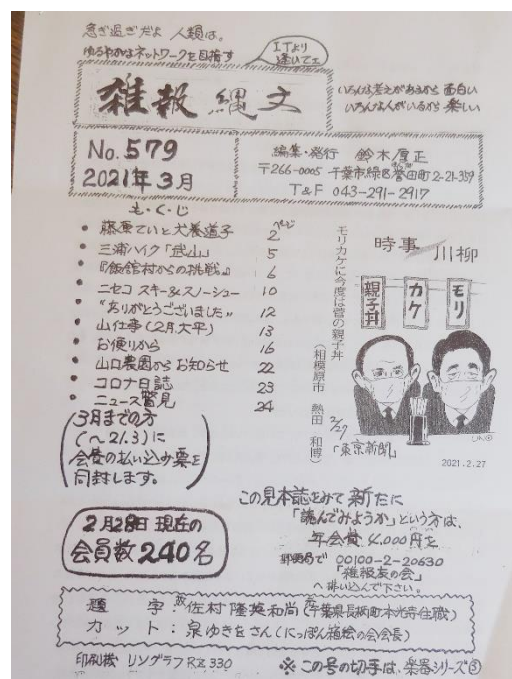 急ぎ過ぎだよ 人類は。
ゆるやかなネットワークを目指す
ITより
逢いてェ
雑報 縄文
いろんな考えがあるから 面白い
いろんな人がいるから 楽しい
No.579
2021年3月
編集・発行 鈴木厚正
〒266-0005 千葉市緑区誉田町2-21-359
T&F 043-291-2917
も・く・じ
ページ
• 藤原ていと犬養道子 2
• 三浦ハイク「武山」 5
• 『飯館村からの挑戦』 6
• ニセコ スキー&スノーシュー 10
• "ありがとうございました" 12
• 山仕事(2月、大平) 13
• お便りから 16
• 山口農園から お知らせ 22
• コロナ日誌 23
• ニュース管見 24
3月までの方
(〜21.3)に
会費の払い込み票を
同封します。
時事川柳
モリカケに今度は菅の親子丼
(相模原市 熱田 和博)
2/27
「東京新聞」
モリ
カケ
親子丼
2021.2.27
2月28日 現在の
会員数 240名
この見本誌をみて 新たに
「読んでみようか」という方は、
年会費 4,000円を
郵便局で 00100-2-20630
「雑報友の会」
へ 払い込んで下さい。
題 字:佐村隆英和尚(千葉県長柄町本光寺住職)
カット:泉ゆきをさん(にっぽん漫絵の会会長)
印刷機 リソグラフRZ330
※ この号の切手は、楽器シリーズ③